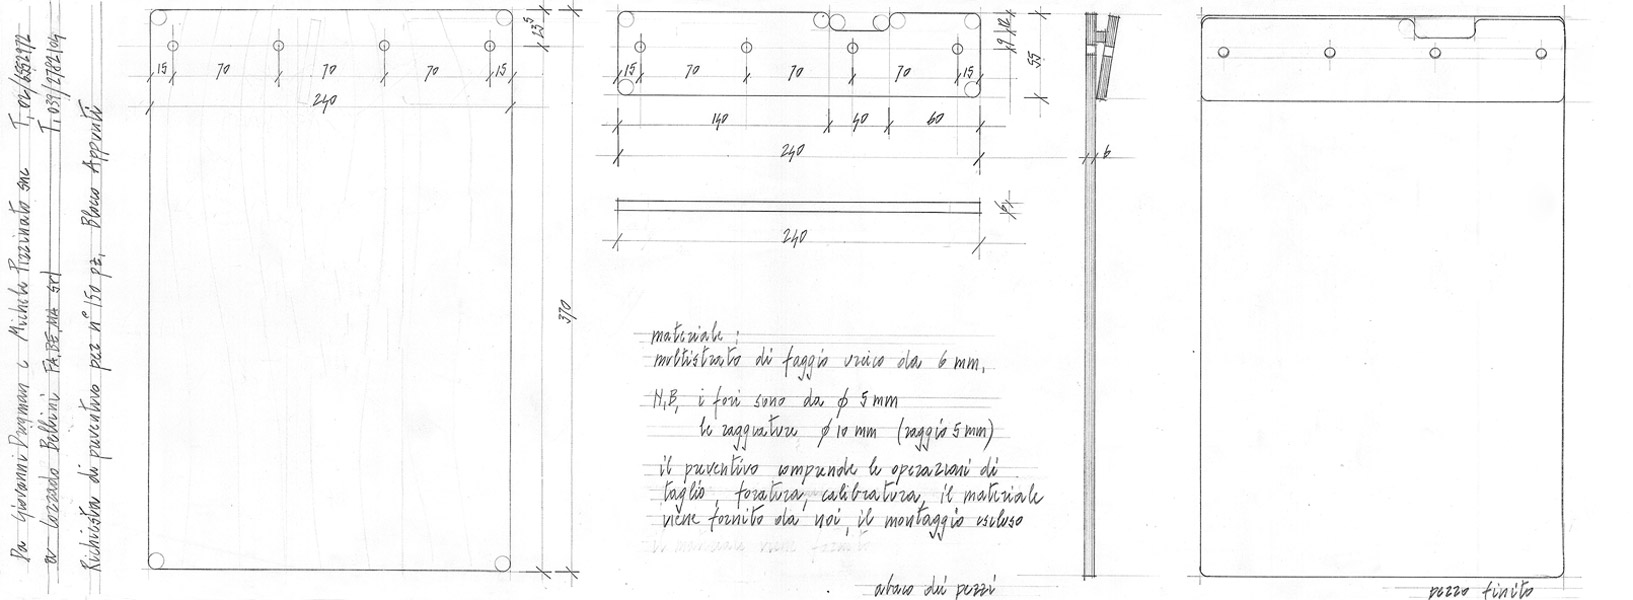 Da Giovanni Dugman e Michele Pizzinato snc T. 02/6552972
a Corrado Bellini FA.BE.MA srl T. 039/2782104
Richiesta di preventivo per n° 150 pz. Blocco Appunti
15 70 70 70 15
240
23⁵
370
15 70 70 70 15
140 40 60
240
9 12
55
240
6
6
materiale:
multistrato di faggio unico da 6 mm.
N.B. i fori sono da φ 5 mm
le raggiature φ 10 mm (raggio 5 mm)
il preventivo comprende le operazioni di
taglio, foratura, calibratura, il materiale
viene fornito da noi, il montaggio escluso
abaco dei pezzi
pezzo finito